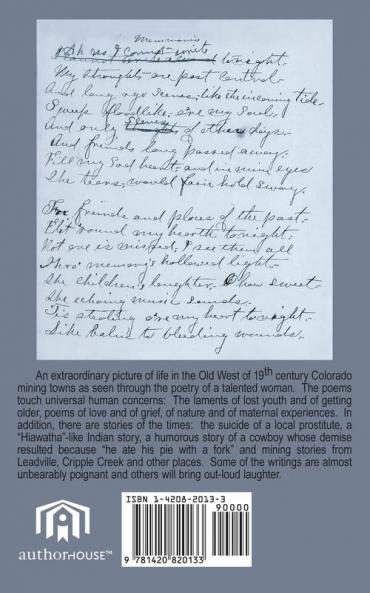 Memories
Ah no I cannot write tonight.
My thoughts are past control.
And long ago scenes, like the incoming tide
Sweep floodlike, o're my soul.
And only scenes of other days.
And friends long passed away.
Fill my sad heart, and in mine eyes
The tears, would fain hold sway.
For friends and places of the past.
Flit 'round my hearth tonight.
Not one is missed, I see them all
Thro' memory's hallowed light.
The children's laughter. Oh how sweet.
The echoing music sounds.
'Tis stealing o're my heart tonight.
Like balm to bleeding wounds.
An extraordinary picture of life in the Old West of 19th century Colorado
mining towns as seen through the poetry of a talented woman. The poems
touch universal human concerns: The laments of lost youth and of getting
older, poems of love and of grief, of nature and of maternal experiences. In
addition, there are stories of the times: the suicide of a local prostitute, a
"Hiawatha"-like Indian story, a humorous story of a cowboy whose demise
resulted because "he ate his pie with a fork" and mining stories from
Leadville, Cripple Creek and other places. Some of the writings are almost
unbearably poignant and others will bring out-loud laughter.
authorHOUSE™
ISBN 1-4208-2013-3
90000
9 781420 820133